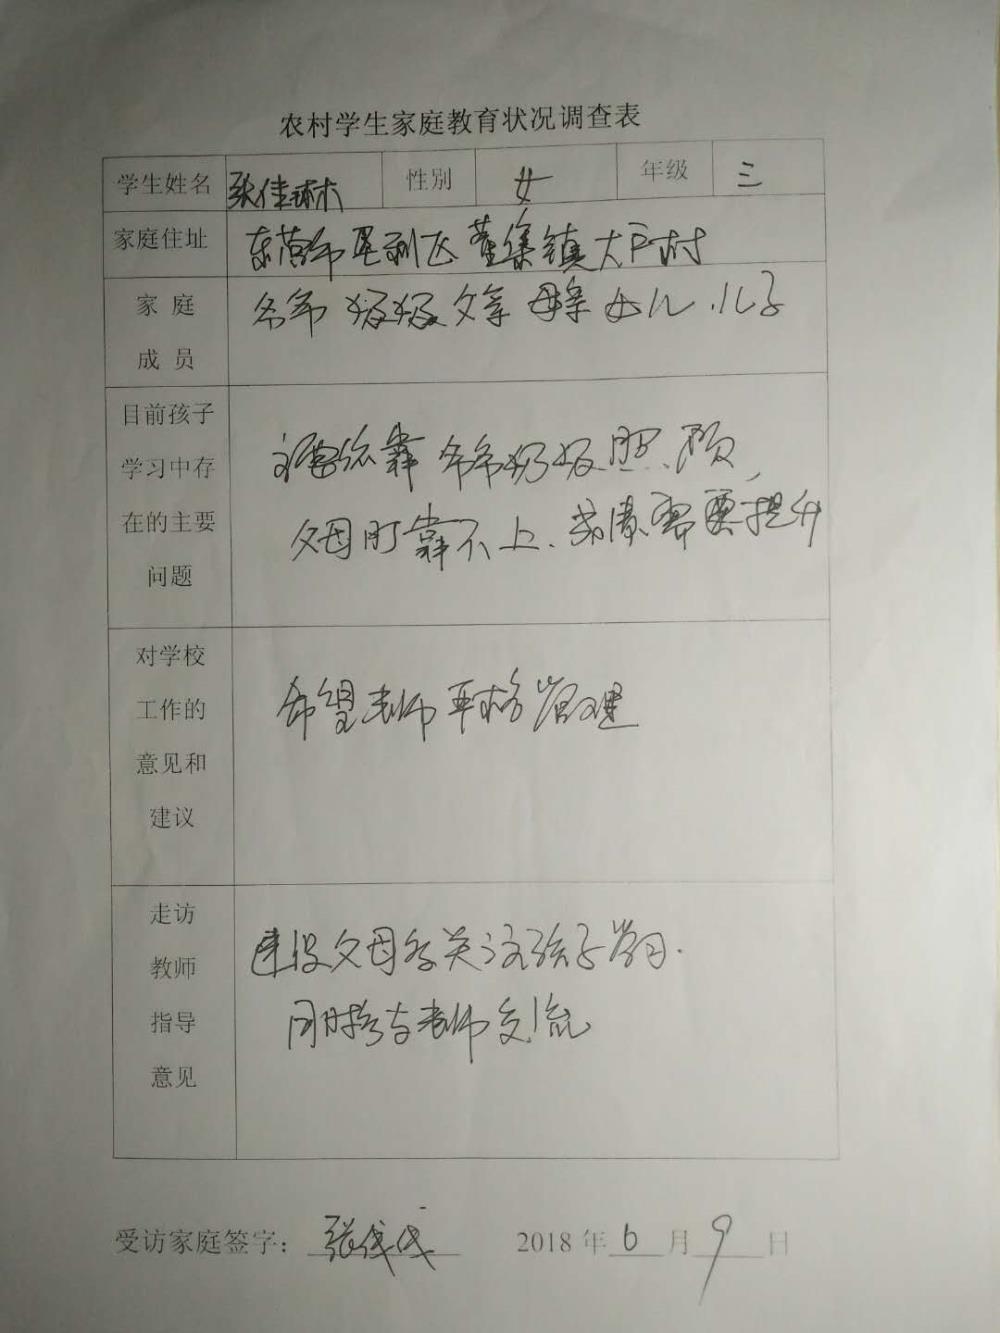 农村学生家庭教育状况调查表
学生姓名 张佳琳 性别 女 年级 三
家庭住址 东营市垦利区董集镇大户村
家庭成员 爷爷 奶奶 父亲 母亲 女儿、儿子
目前孩子
学习中存
在的主要
问题
依靠爷爷奶奶照顾,
父母时靠不上、成绩需要提升
对学校
工作的
意见和
建议
希望老师严格管理
走访
教师
指导
意见
建议父母多关注孩子学习.
同时多与老师交流
受访家庭签字: 张 2018年6月9日